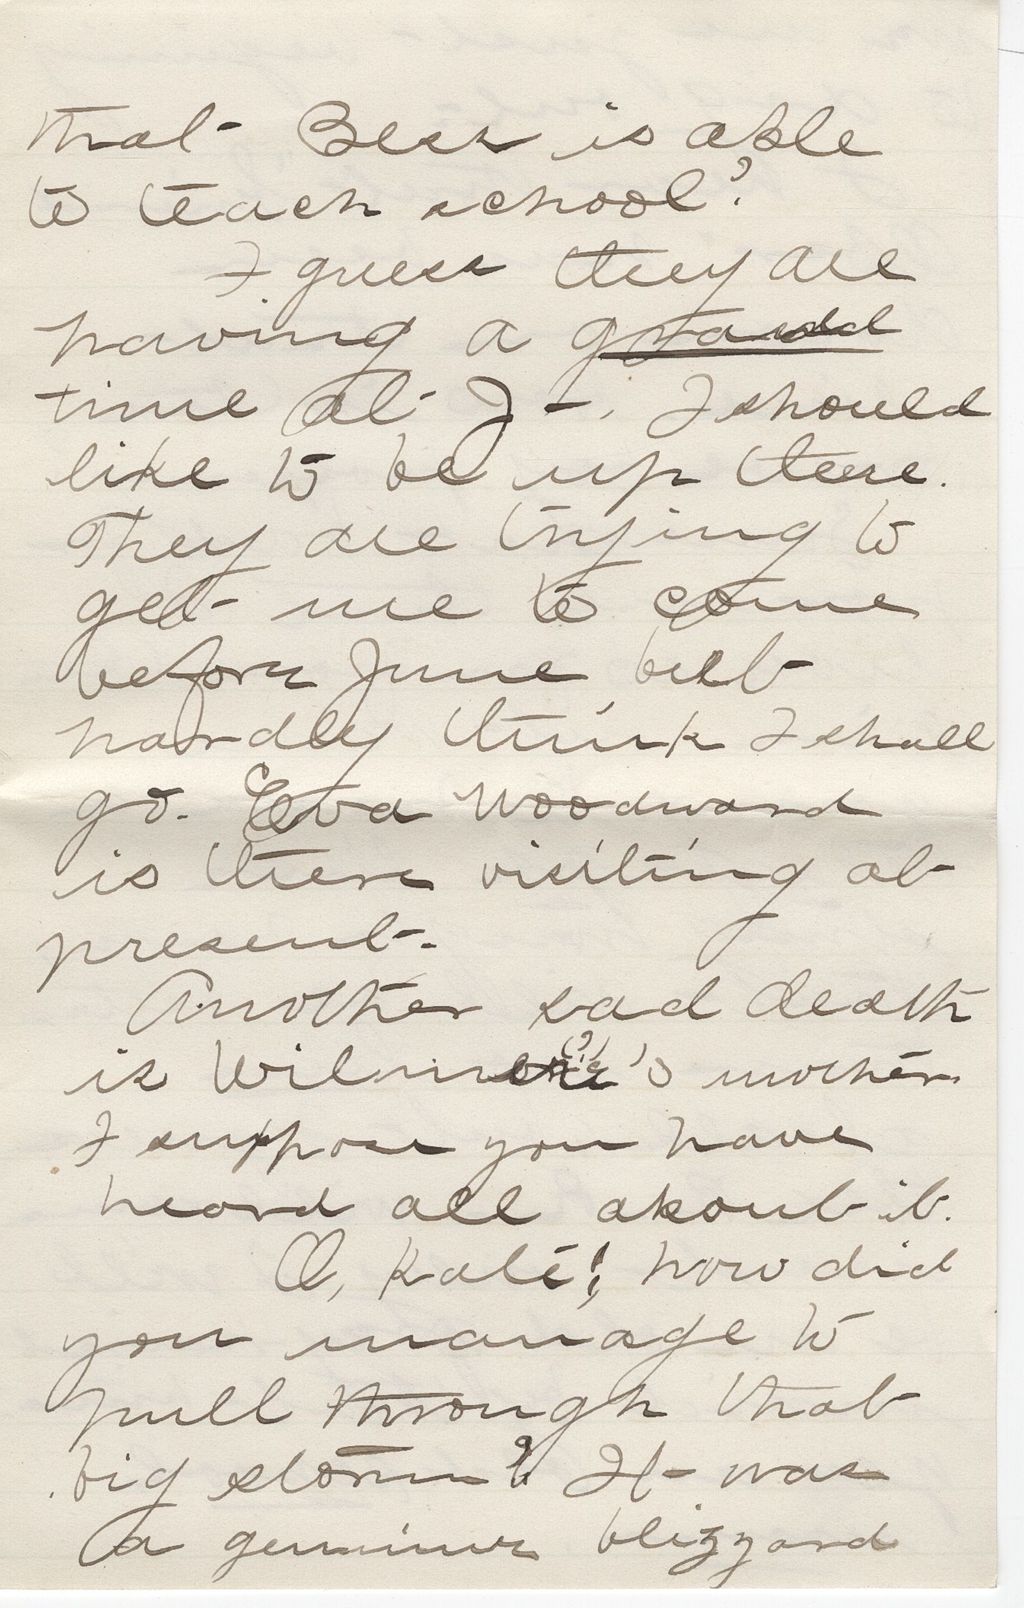 that Bess is able
to teach school?
I guess they are
having a grand
time at J-. I should
like to be up there.
They are trying to
get me to come
before June but
hardly think I shall
go. Eva Woodward
is there visiting at
present.
Another sad death
is (?)'s mother
I suppose you have
heard all about it.
O, Kate!, how did
you manage to
pull through that
big storm? It was
a genuine blizzard